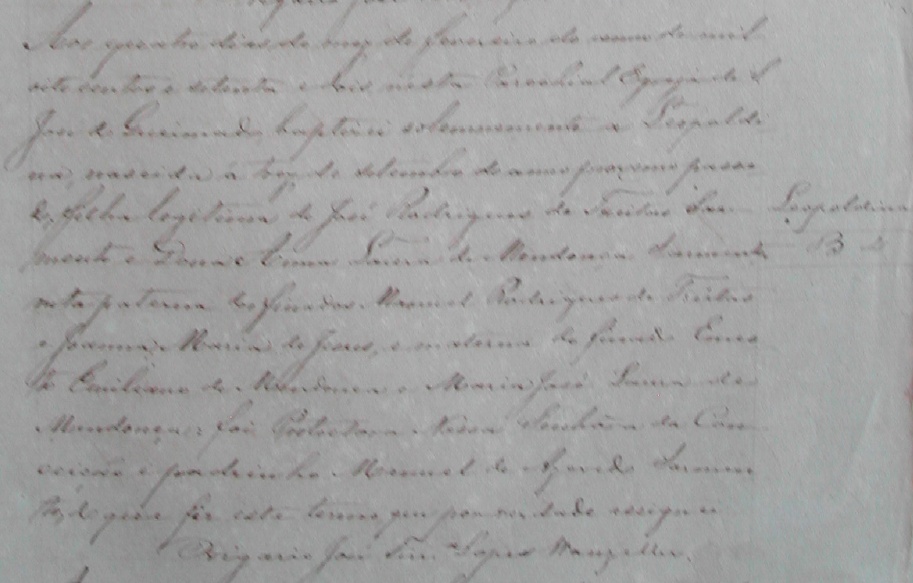 Aos quatro dias do mez de fevereiro do anno de mil
oito centos e setenta e dois nesta Parochial Egreja de S
José do Queimado baptisei solemnemente a Leopoldi
na, nascida a trez de setembro do anno proximo passa
do, filha legitima de José Rodrigues de Freitas Sar
mento e Dona Anna Laura de Mendonça Sarmento
neta paterna dos finados Manoel Rodrigues de Freitas
e Joanna Maria de Jesus, e materna do finado Ernes
to Emiliano de Mendonça e Maria José Laura de
Mendonça: foi Protectora Nossa Senhora da Con
ceição e padrinho Manoel de Azevedo Sarmen
to, do que fiz este termo que por verdade assignei
Vigario José Lopes Wanzeller.
Leopoldina
B